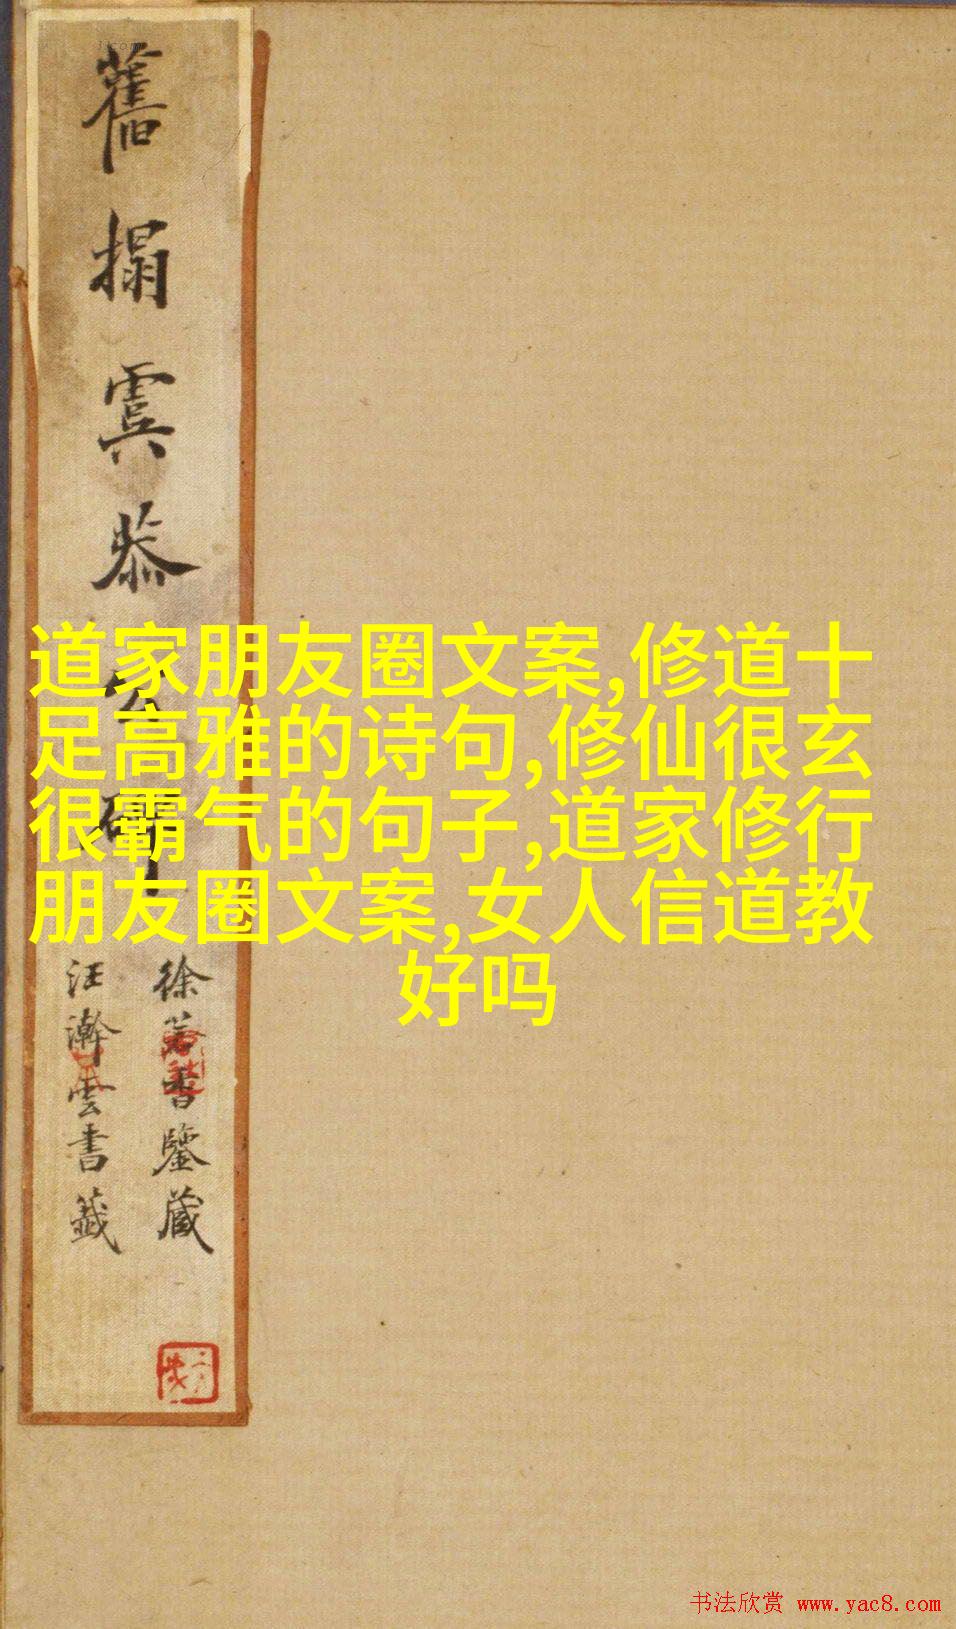 舊搨虞恭公碑
徐若書鑒藏
汪瀚雲書籤
道家朋友圈文案,修道十
足高雅的诗句,修仙很玄
很霸气的句子,道家修行
朋友圈文案,女人信道教
好吗
书法欣赏 www.yac8.com